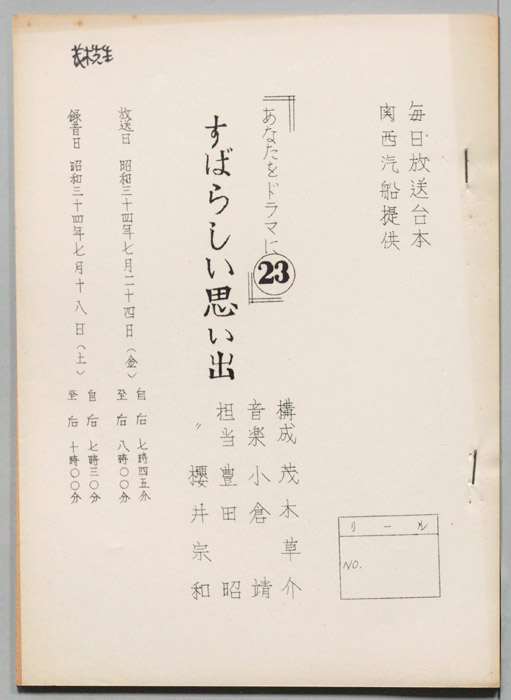 毎日放送台本
関西汽船提供
『あなたをドラマに』
23
すばらしい思い出
構成 茂木草介
音楽 小倉靖
担当 豊田昭
〃 櫻井宗和
放送日 昭和三十四年七月二十四日（金）
自后七時四五分
至后八時〇〇分
録音日 昭和三十四年七月十八日（土）
自后七時三〇分
至后十時〇〇分
茂木先生
リール
NO.